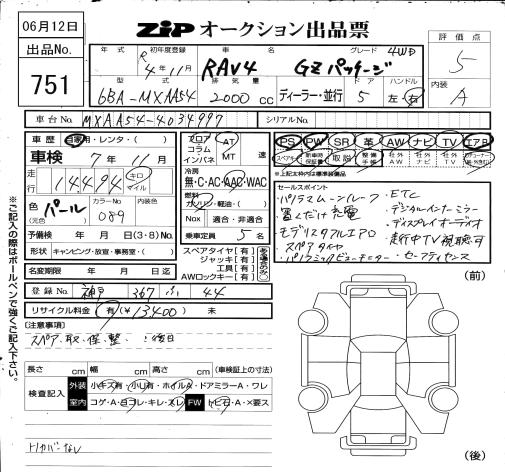 06月12日
ZiP オークション出品票
出品No.
751
年式 初年度登録 車名 グレード 4WD
R 4年11月 RAV4 GZパッケージ
型式 排気量 ドア ハンドル
6BA-MXAA54 2000cc ディーラー・並行 5 左・右
評価点
5
内装
A
車台No. MXAA54-4034997 シリアルNo.
車歴 自家用・レンタ・( )
フロア コラム インパネ AT MT 速
PS PW SR 革 AW ナビ TV エアB
車検 7年11月
スペアキー 新車時保証書 取説 整備手帳 社外AW 社外ナビ 社外TV
※上記太枠内は標準装備品
走行 14494 キロ マイル
冷房 無・C・AC・AAC・WAC
燃料 ガソリン・軽油・( )
色 (元色) パール カラーNo. 089
Nox 適合・非適合
乗車定員 5 名
セールスポイント
パノラマムーンルーフ ETC
置くだけ充電 デジタルインナーミラー
モデリスタエアロ ディスプレイオーディオ
スペアタイヤ 走行中TV視聴可
パノラミックビューモニター セーフティセンス
予備検 年 月 日(3・8)No.
形状 キャンピング・放宣・事務室・( )
スペアタイヤ[有]
ジャッキ[有]
工具[有]
AWロックキー[有]
名変期限 年 月 日迄
登録No. 神戸 367 44
リサイクル料金 有(¥13400) 未
(注意事項)
スペア、取、保、整、:後日
長さ cm 幅 cm 高さ cm (車検証上の寸法)
検査記入 外装 小キズ有・小凹有・ホイルA・ドアミラーA・ワレ
室内 コゲ・A・ヨゴレ・キレ・スレ FW トビ石・A・×要ス
トノカバーなし
(前)
(後)
※ご記入の際はボールペンで強くご記入下さい。